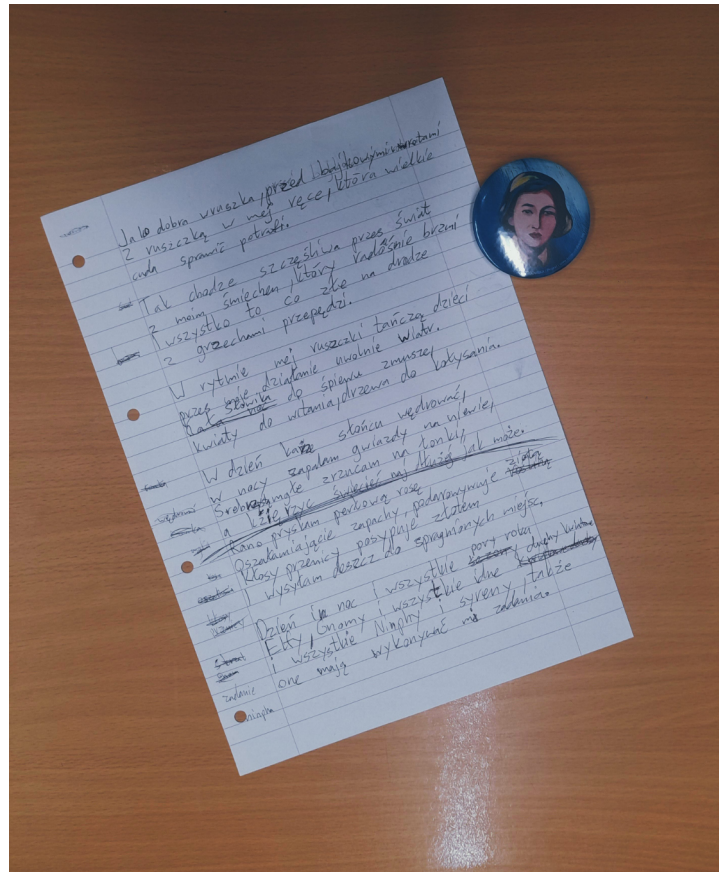 Jako dobra wruszka, przed bajkowymi wrotami
z ruszczką w mej ręce, która wielkie
cuda sprawić potrafi.
Tak chodze szczęśliwa przes świat
z moim śmiechen, który radośnie brzmi
i wszystko to co złe na drodze
z grzechami przepędzi.
W rytmie mej ruszczki tańczą dzieci
przes moje działanie uwolnie wiatr.
do śpiewu zmuszę,
kwiaty do witania, drzewa do kołysania.
W dzień każe słońcu wędrować,
w nocy zapalam gwiazdy na niewie,
Srebrną mgłe zrzucam na łonki,
a księrzyc świecić naj dłużej jak może.
Rano pryskam perłową rosę
Oszałamiające zapachy, podarowymuje zioła
Kłosy przenicy posypuje złotem
i wysyłam deszcz do spragnionych miejsc.
Dzień i noc i wszystkie pory roku
Elfy, Gnomy i wszystkie idne duchy
i wszystkie Ninphy i syreny, także
one mają wykonywać me zadania.
zadanie
ninpha